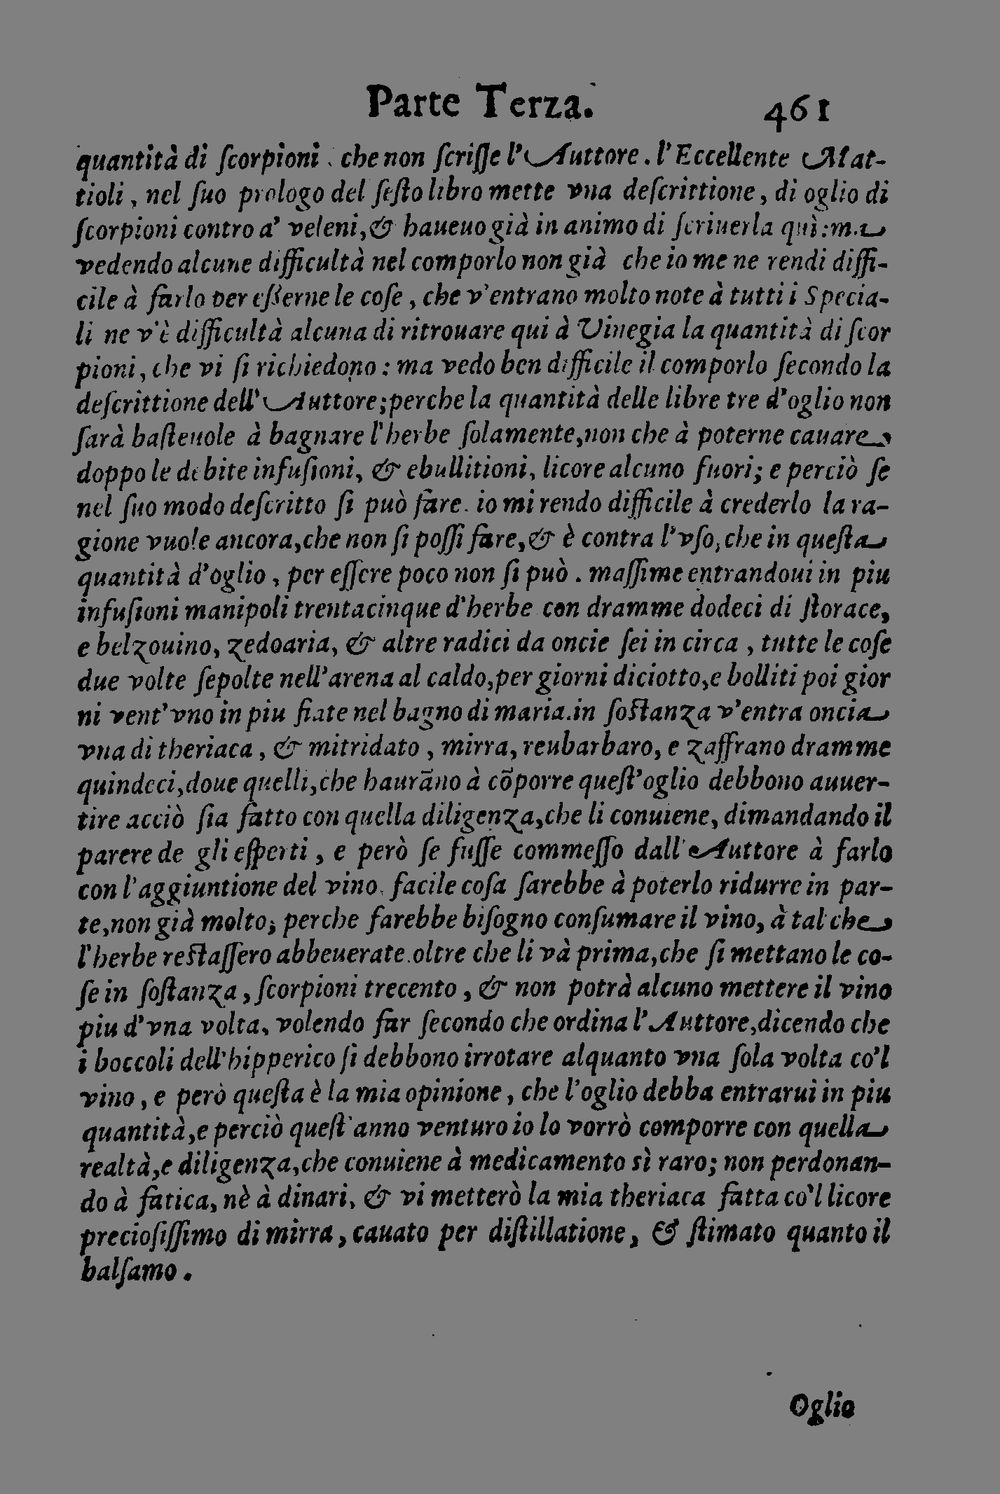 Parte Terza. 461
quantità di ſcorpioni, che non ſcriſſe l'Auttore. l'Eccellente Mat-
tioli, nel ſuo prologo del ſeſto libro mette vna deſcrittione, di oglio di
ſcorpioni contro a' veleni, & haueuo già in animo di ſcriuerla quì: ma
vedendo alcune difficultà nel comporlo non già che io me ne rendi diffi-
cile à farlo per eſſerne le coſe, che v'entrano molto note à tutti i Specia-
li ne v'è difficultà alcuna di ritrouare qui à Vinegia la quantità di ſcor
pioni, che vi ſi richiedono: ma vedo ben difficile il comporlo ſecondo la
deſcrittione dell'Auttore; perche la quantità delle libre tre d'oglio non
ſarà baſteuole à bagnare l'herbe ſolamente, non che à poterne cauare,
doppo le debite infuſioni, & ebullitioni, licore alcuno fuori; e perciò ſe
nel ſuo modo deſcritto ſi può fare. io mi rendo difficile à crederlo la ra-
gione vuole ancora, che non ſi poſſi fare, & è contra l'vſo, che in queſta
quantità d'oglio, per eſſere poco non ſi può. maſſime entrandoui in piu
infuſioni manipoli trentacinque d'herbe con dramme dodeci di ſtorace,
e belzouino, zedoaria, & altre radici da oncie ſei in circa, tutte le coſe
due volte ſepolte nell'arena al caldo, per giorni diciotto, e bolliti poi gior
ni vent'vno in piu fiate nel bagno di maria. in ſoſtanza v'entra oncia
vna di theriaca, & mitridato, mirra, reubarbaro, e zaffrano dramme
quindeci, doue quelli, che haurãno à cõporre queſt'oglio debbono auuer-
tire acciò ſia fatto con quella diligenza, che li conuiene, dimandando il
parere de gli eſperti, e però ſe fuſſe commeſſo dall'Auttore à farlo
con l'aggiuntione del vino, facile coſa ſarebbe à poterlo ridurre in par-
te, non già molto; perche farebbe biſogno conſumare il vino, à tal che
l'herbe reſtaſſero abbeuerate. oltre che li và prima, che ſi mettano le co-
ſe in ſoſtanza, ſcorpioni trecento, & non potrà alcuno mettere il vino
piu d'vna volta, volendo far ſecondo che ordina l'Auttore, dicendo che
i boccoli dell'hipperico ſi debbono irrotare alquanto vna ſola volta co'l
vino, e però queſta è la mia opinione, che l'oglio debba entrarui in piu
quantità, e perciò queſt'anno venturo io lo vorrò comporre con quella
realtà, e diligenza, che conuiene à medicamento sì raro; non perdonan-
do à fatica, nè à dinari, & vi metterò la mia theriaca fatta co'l licore
precioſiſſimo di mirra, cauato per diſtillatione, & ſtimato quanto il
balſamo.
Oglio